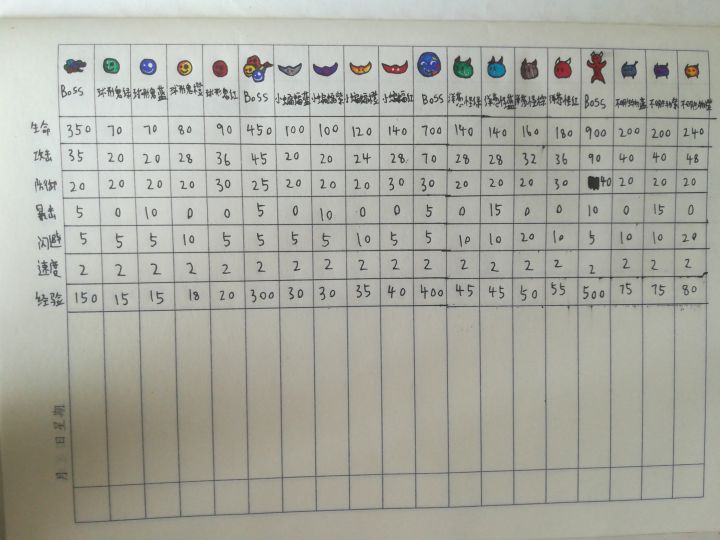 Boss 球形鬼绿 球形鬼蓝 球形鬼橙 球形鬼红 Boss 小蝙蝠蓝 小蝙蝠紫 小蝙蝠橙 小蝙蝠红 Boss 洋葱怪绿 洋葱怪蓝 洋葱怪棕 洋葱怪红 Boss 不明生物蓝 不明生物紫 不明生物橙
生命 350 70 70 80 90 450 100 100 120 140 700 140 140 160 180 900 200 200 240
攻击 35 20 20 28 36 45 20 20 24 28 70 28 28 32 36 90 40 40 48
防御 20 20 20 20 30 25 20 20 20 30 30 20 20 20 30 40 20 20 20
暴击 5 0 10 0 0 5 0 10 0 0 5 0 15 0 0 10 0 15 0
闪避 5 5 5 10 5 5 5 5 10 5 5 10 10 20 10 5 10 10 20
速度 2 2 2 2 2 2 2 2 2 2 2 2 2 2 2 2 2 2 2
经验 150 15 15 18 20 300 30 30 35 40 400 45 45 50 55 500 75 75 80
月 日 星期